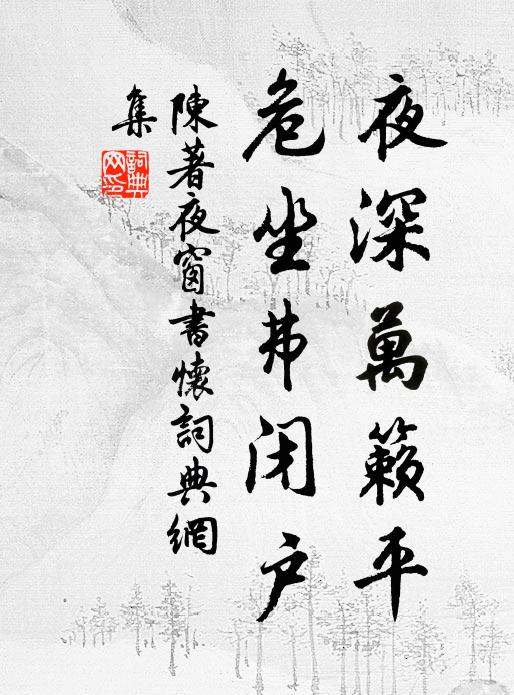 夜深萬籟平
危坐弗闭户
陳著夜窗書懷詞典網
集
詞典
网印